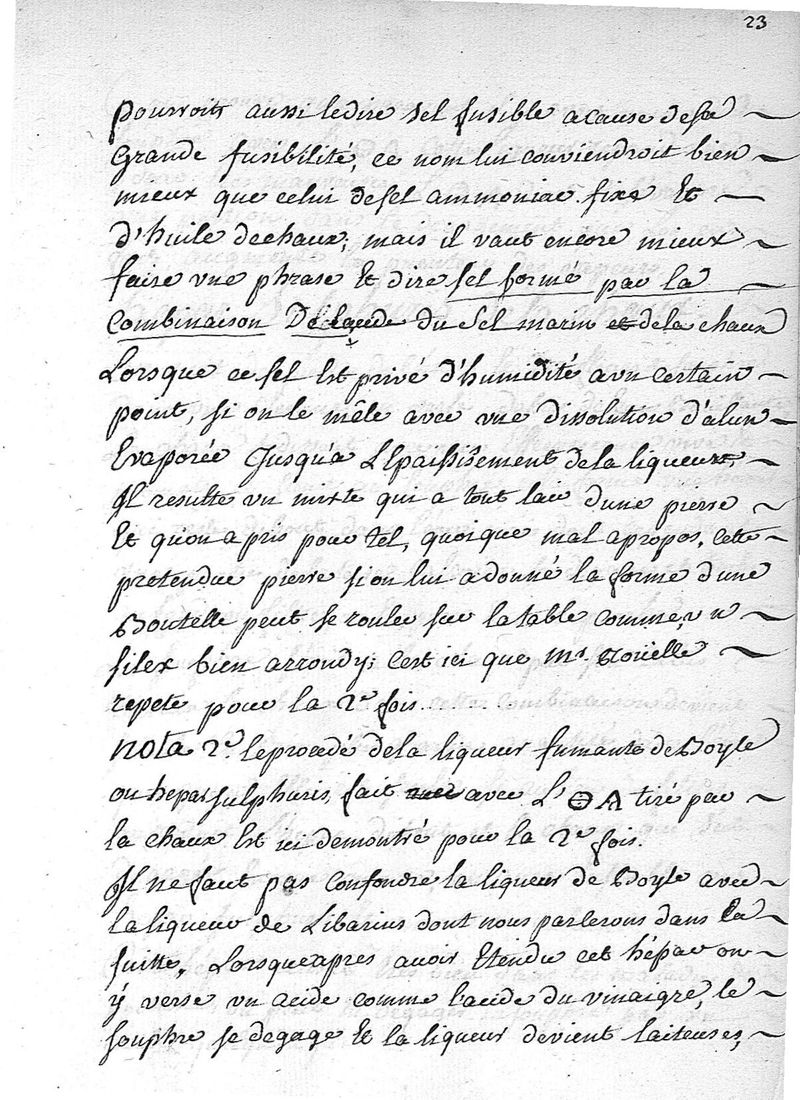 23
pourroit aussi le dire sel fusible a cause de sa
Grande fusibilité, ce nom lui conviendroit bien
mieux que celui de sel ammoniac fixe Et
d'huile de chaux; mais il vaut encore mieux
faire une phrase Et dire sel formé par la
Combinaison De lacide du sel marin et de la chaux
Lorsque ce sel Est privé d'humidité a un certain
point, si on le mêle avec une dissolution d'alun
Evaporée Jusqu'a L'Epaississement de la liqueur,
Il resulte un mixte qui a tout lair dune pierre
Et qu'on a pris pour tel, quoique mal apropos, cette
pretendue pierre si on lui a donné la forme dune
Bouteille peut se rouler sur la table comme un
silex bien arrondy; C'est ici que Mr. Roüelle
repete pour la 2e fois......
nota 2o. le procedé de la liqueur fumante de Boyle
ou hepar sulphuris, fait avec L' tiré par
la chaux Est ici demontré pour la 2e fois.
Il ne faut pas Confondre la liqueur de Boyle avec
la liqueur de Libavius dont nous parlerons dans la
suitte. Lorsqu'apres avoir Etendu cet hépar on
ÿ verse un acide comme l'acide du vinaigre, le
souphre se degage Et la liqueur devient laiteuse,